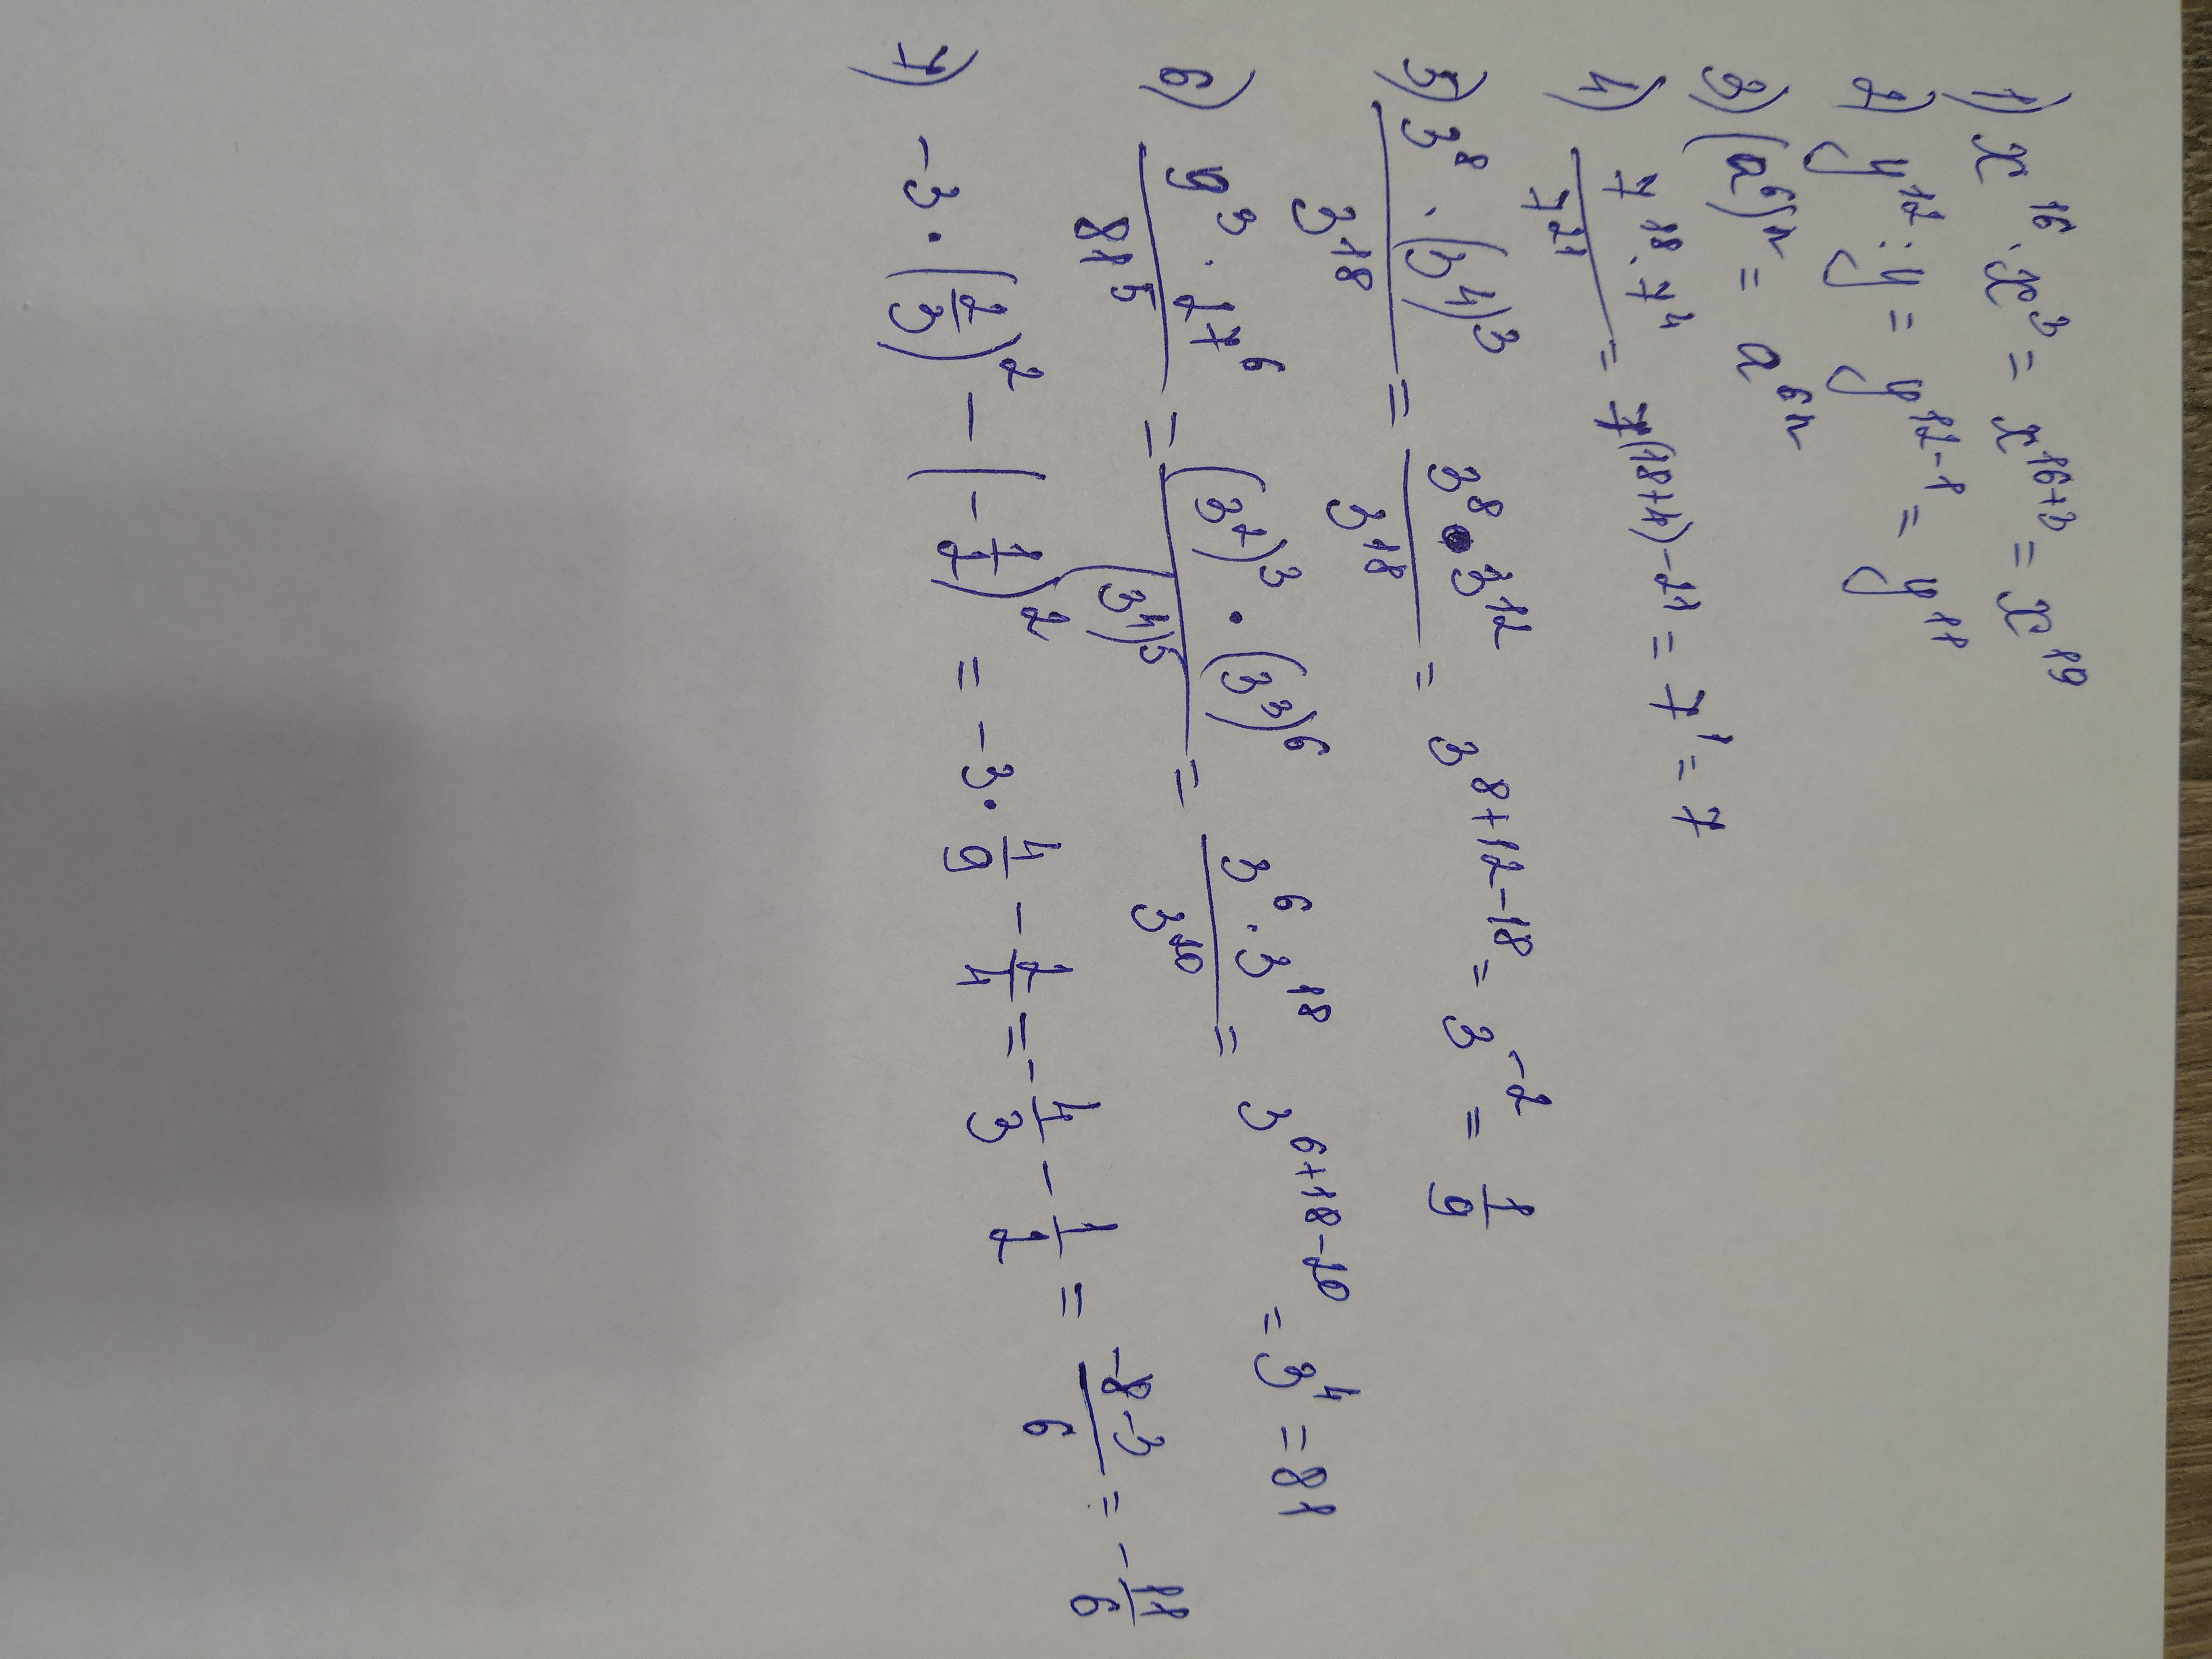 1) x^16 · x^3 = x^16+3 = x^19
2) y^12 : y = y^12-1 = y^11
3) (a^6)^n = a^6n
4) (7^18 · 7^4)/7^21 = 7^(18+4)-21 = 7^1 = 7
5) (3^8 · (3^4)^3)/3^18 = (3^8 · 3^12)/3^18 = 3^8+12-18 = 3^-2 = 1/9
6) (9^3 · 27^6)/81^5 = ((3^2)^3 · (3^3)^6)/(3^4)^5 = (3^6 · 3^18)/3^20 = 3^6+18-20 = 3^4 = 81
7) -3 · (2/3)^2 - (-1/2)^2 = -3 · 4/9 - 2/4 = -4/3 - 1/2 = (-8-3)/6 = -11/6